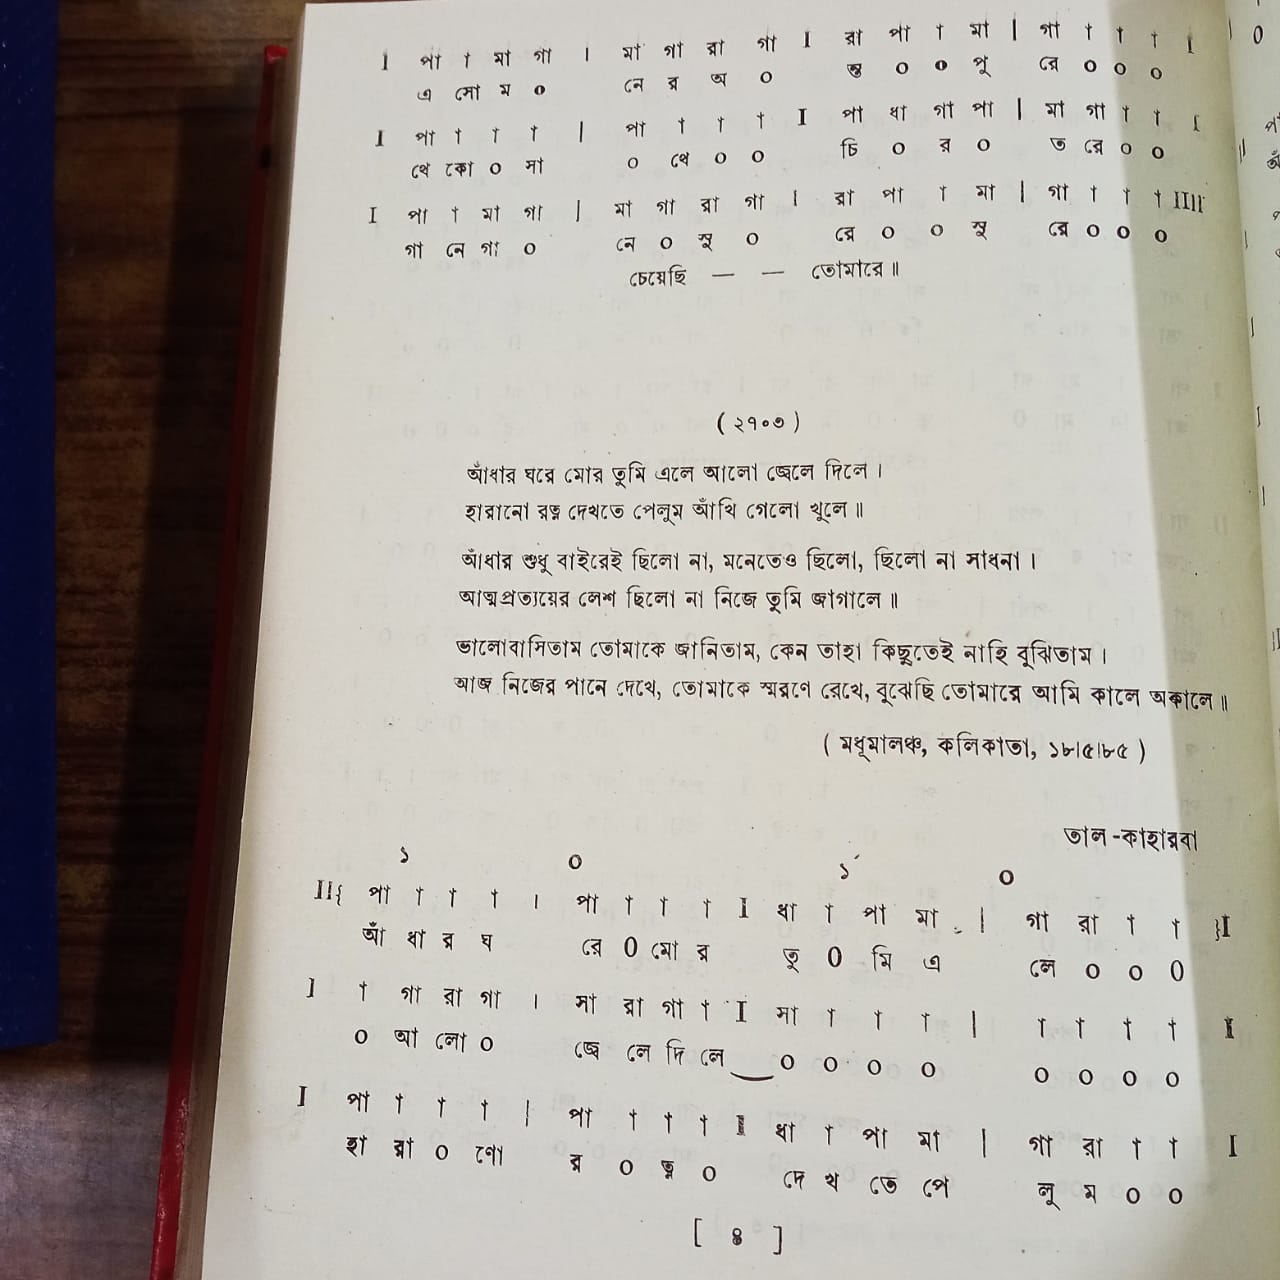 I পা † মা গা | মা গা রা গা I রা পা † মা | গা † † † I
এ সো ম ০ নে র অ ০ ন্ত ০ ০ পু রে ০ ০ ০
I পা † † † | পা † † † I পা ধা গা পা | মা গা † † I
থে কো ০ না ০ থে ০ ০ চি ০ র ০ ত রে ০ ০
I পা † মা গা | মা গা রা গা | রা পা † মা | গা † † † IIII
গা নে গা ০ নে ০ সু ০ রে ০ ০ সু রে ০ ০ ০
চেয়েছি — — তোমারে॥
(২১০৩)
আঁধার ঘরে মোর তুমি এলে আলো জ্বেলে দিলে।
হারানো রত্ন দেখতে পেলুম আঁখি গেলো খুলে॥
আঁধার শুধু বাইরেই ছিলো না, মনেতেও ছিলো, ছিলো না সাধনা।
আত্মপ্রত্যয়ের লেশ ছিলো না নিজে তুমি জাগালে॥
ভালোবাসিতাম তোমাকে জানিতাম, কেন তাহা কিছুতেই নাহি বুঝিতাম।
আজ নিজের পানে দেখে, তোমাকে স্মরণে রেখে, বুঝেছি তোমারে আমি কালে অকালে॥
(মধুমালঞ্চ, কলিকাতা, ১৮।৫।৮৫)
তাল-কাহারবা
১ ০ ১́ ০
II{ পা † † † | পা † † † I ধা † পা মা | গা রা † † }I
আঁ ধা র ঘ রে ০ মো র তু ০ মি এ লে ০ ০ ০
I † গা রা গা | সা রা গা † I সা † † † | † † † † I
০ আ লো ০ জ্বে লে দি লে ০ ০ ০ ০ ০ ০ ০ ০
I পা † † † | পা † † † I ধা † পা মা | গা রা † † I
হা রা ০ নো র ০ ত্ন ০ দে খ তে পে লু ম ০ ০
[ ৪ ]